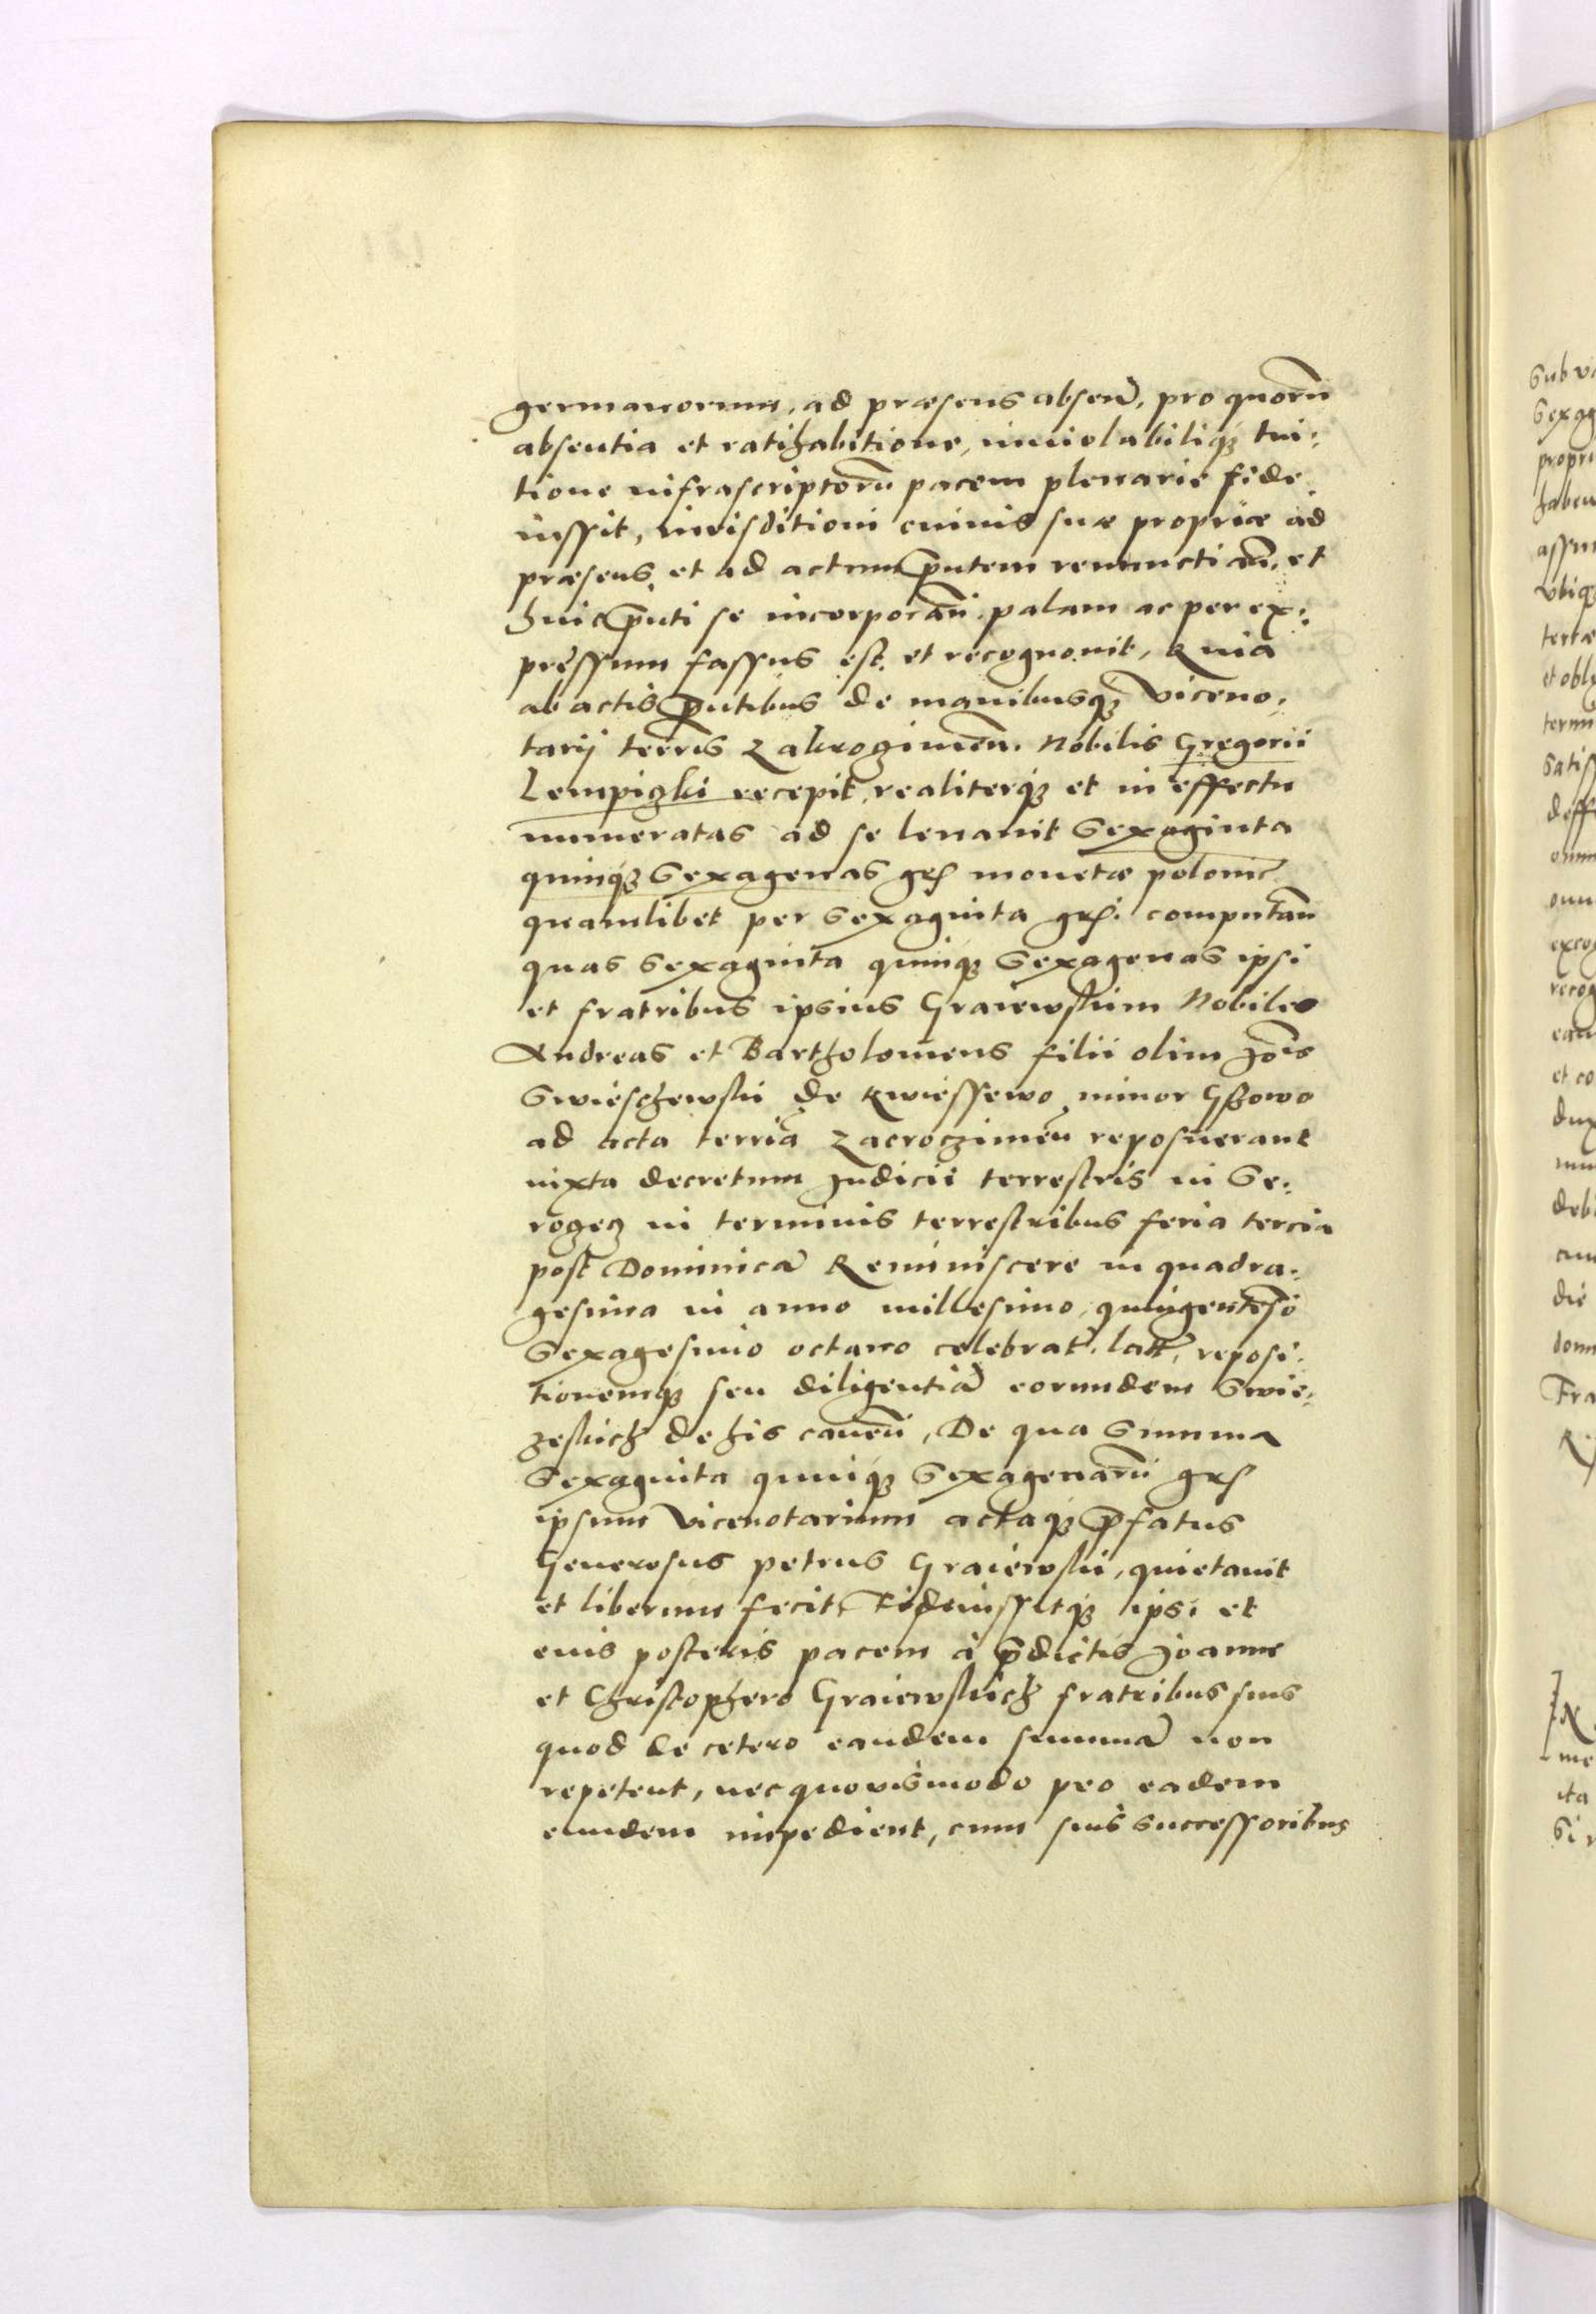 germanorum, ad præsens absen̄, pro quorū
absentia et ratihabitione, inviolabiliqȝ tui:
tione infrascriptorū pacem plenarie fide
iussit, iurisditioni cuiuis suæ propriæ ad
præsens, et ad actum p̄ntem renunctiān, et
huic p̄nti se incorporān, palam ac per ex:
pressum fassus est, et recognovit, Quia
ab actis p̄ntibus de manibusqȝ Viceno,
tarij terris Zakrogimen̄. Nobilis Gregorii
Lempiczki recepit, realiterqȝ et in effectu
numeratas ad se levavit Sexaginta
quinqȝ Sexagenas grs monetæ polonic̄
quamlibet per Sexaginta grs. computān
quas Sexaginta quinqȝ Sexagenas ipsi
et fratribus ipsius Graiewskim Nobiles
Andreas et Bartholomeus filii olim Jōis
Swieschewski de Kwiessewo minor Gzowo
ad acta terriā Zacroczimen̄ reposuerant
iuxta decretum Judicii terrestris in Se:
rogecz in terminis terrestribus feria tercia
post Dominicā Reminiscere in quadra:
gesima in anno millesimo, quingentesō
Sexagesimo octavo celebrat̄. latt̄, reposi:
tionemqȝ seu diligentiā eorundem Swie:
zeskich de his cavēn, De qua Summa
Sexaginta quinqȝ Sexagenarū grs
ipsum Vicenotarium actaqȝ p̄fatus
Generosus petrus Graiewski, quietavit
et liberum fecit, Fideiussitqȝ ipsi et
eius posteris pacem à p̄dictis Joanne
et Christophero Graiewskich fratribus suis
quod de cetero eandem summā non
repetent, nec quovismodo pro eadem
eundem impedient, cum suis successoribus